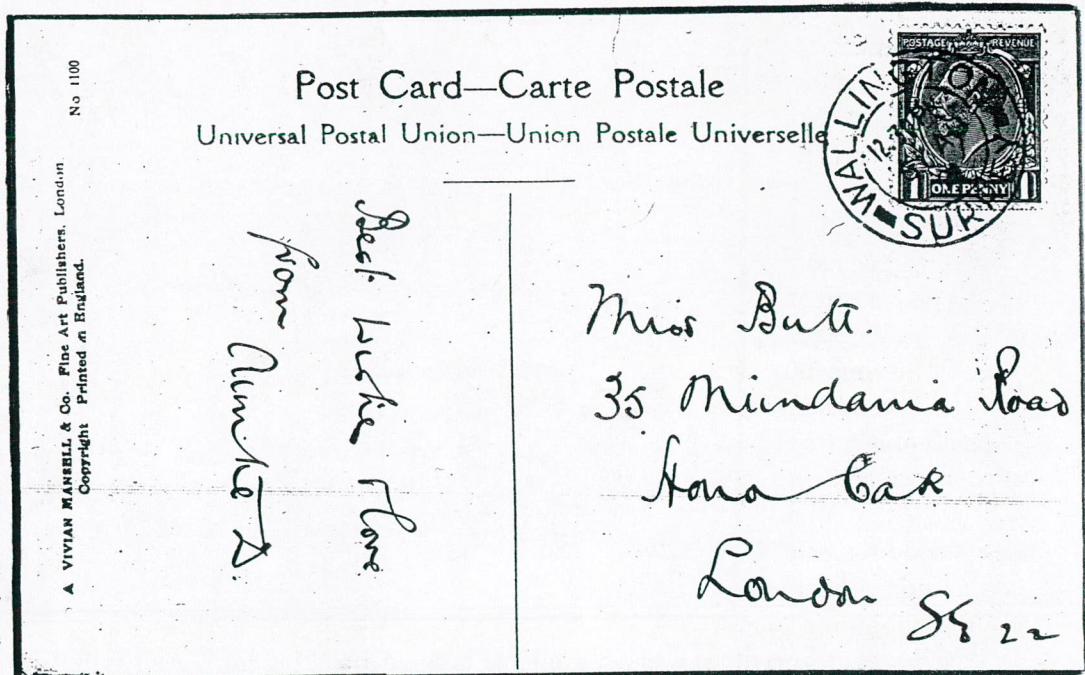 No 1100
Post Card—Carte Postale
Universal Postal Union—Union Postale Universelle
POSTAGE REVENUE
1 ONE PENNY 1
WALLINGTON
SURREY
▲ VIVIAN MANSELL & Co. Fine Art Publishers, London
Copyright Printed in England.
Best love
from Auntie D.
Miss Butt.
35 Mundania Road
Honor Oak
London
SE 22